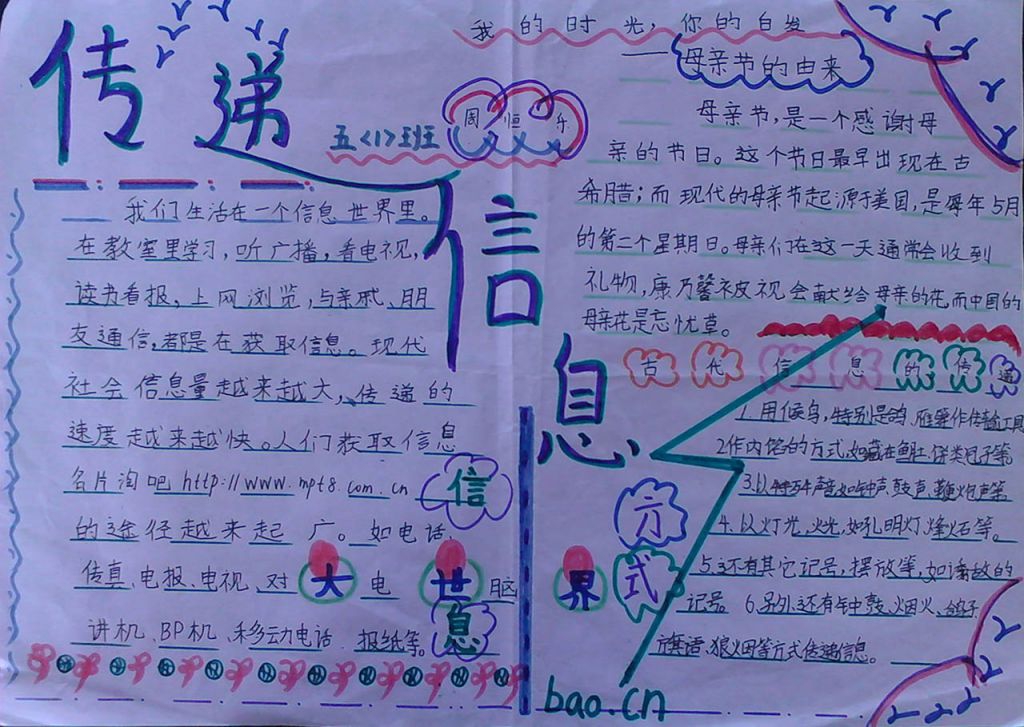 传递
信
息
五<1>班
周恒乐
我们生活在一个信息世界里。
在教室里学习，听广播，看电视，
读书看报，上网浏览，与亲戚、朋
友通信，都是在获取信息。现代
社会信息量越来越大，传递的
速度越来越快。人们获取信息
名片淘吧 http://www.mpt8.com.cn
的途径越来起广。如电话、
传真、电报、电视、对 大 电 世 脑 界
讲机、BP机、移动电话、报纸等。
信
息
方
式
bao.cn
我的时光，你的白发
——母亲节的由来
母亲节，是一个感谢母
亲的节日。这个节日最早出现在古
希腊；而现代的母亲节起源于美国，是每年5月
的第二个星期日。母亲们在这一天通常会收到
礼物，康乃馨被视会献给母亲的花，而中国的
母亲花是忘忧草。
古代信息的传递
1.用候鸟，特别是鸽、雁等作传输工具
2作内馅的方式，如藏在鱼肚、饼类包子等
声音如钟声、鼓声、鞭炮声等
4.以灯光、火光，如孔明灯，烽火台等。
5.还有其它记号，摆放等，如诸放的
记号。6.另外还有钟鼓、烟火、鸽子、
旗语、狼烟等方式传递信息。